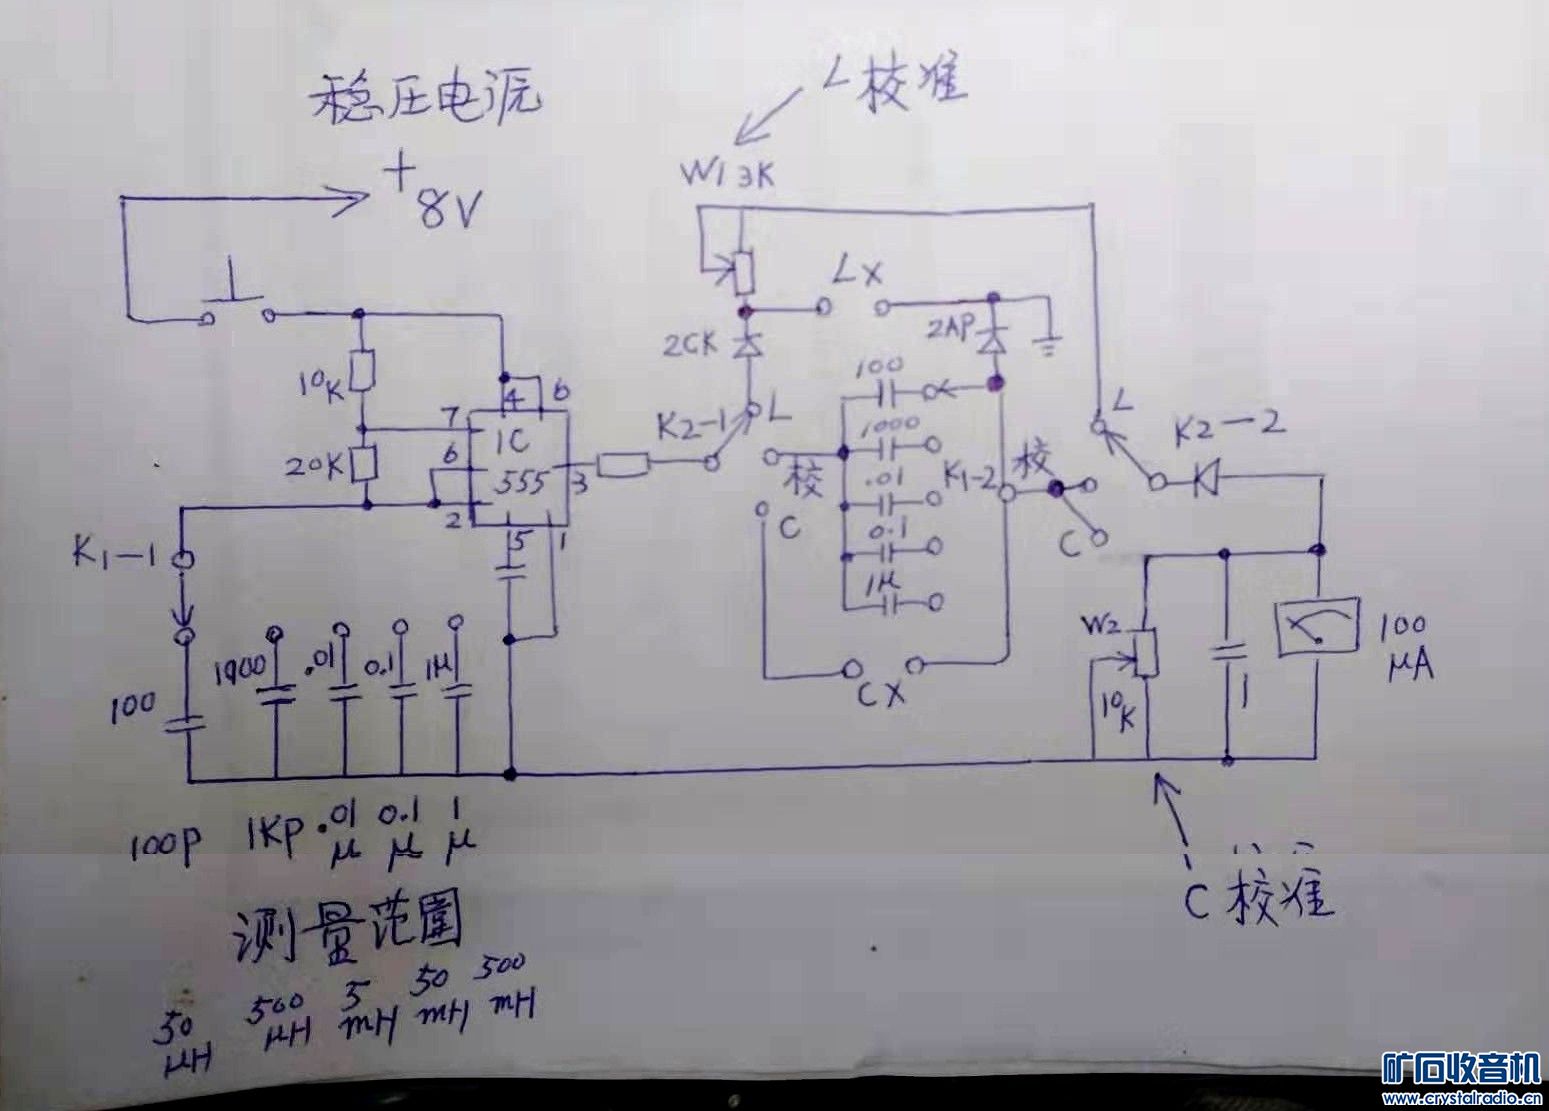 稳压电源
+
8V
L校准
W1 3K
LX
2CK
2AP
10K
20K
7
4
6
6
1C
555
3
2
5
1
K2-1
L
校
C
100
1000
.01
0.1
1μ
K1-2
校
L
C
K2-2
CX
K1-1
100
1000
.01
0.1
1μ
W2
10K
1
100
μA
C校准
100P
1KP
.01
μ
0.1
μ
1
μ
测量范圍
50
μH
500
μH
5
mH
50
mH
500
mH
矿石收音机
www.crystalradio.cn